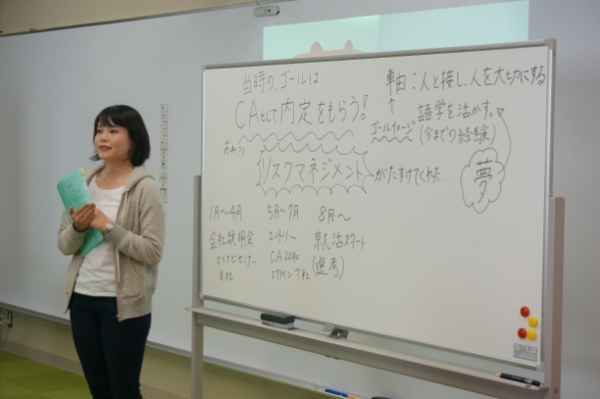 当時の、ゴールは…
CAとして内定をもらう!
軸:人と接し、人を大切にする
語学を活かす。
ゴールイメージ
(今までの経験)
あれっ
リスクマネジメントがたすけてくれた…
夢
1月〜4月 5月〜7月 8月〜
会社説明会 エントリー 就活スタート
マイナビセミナー CA20社 (選考)
本社 7社